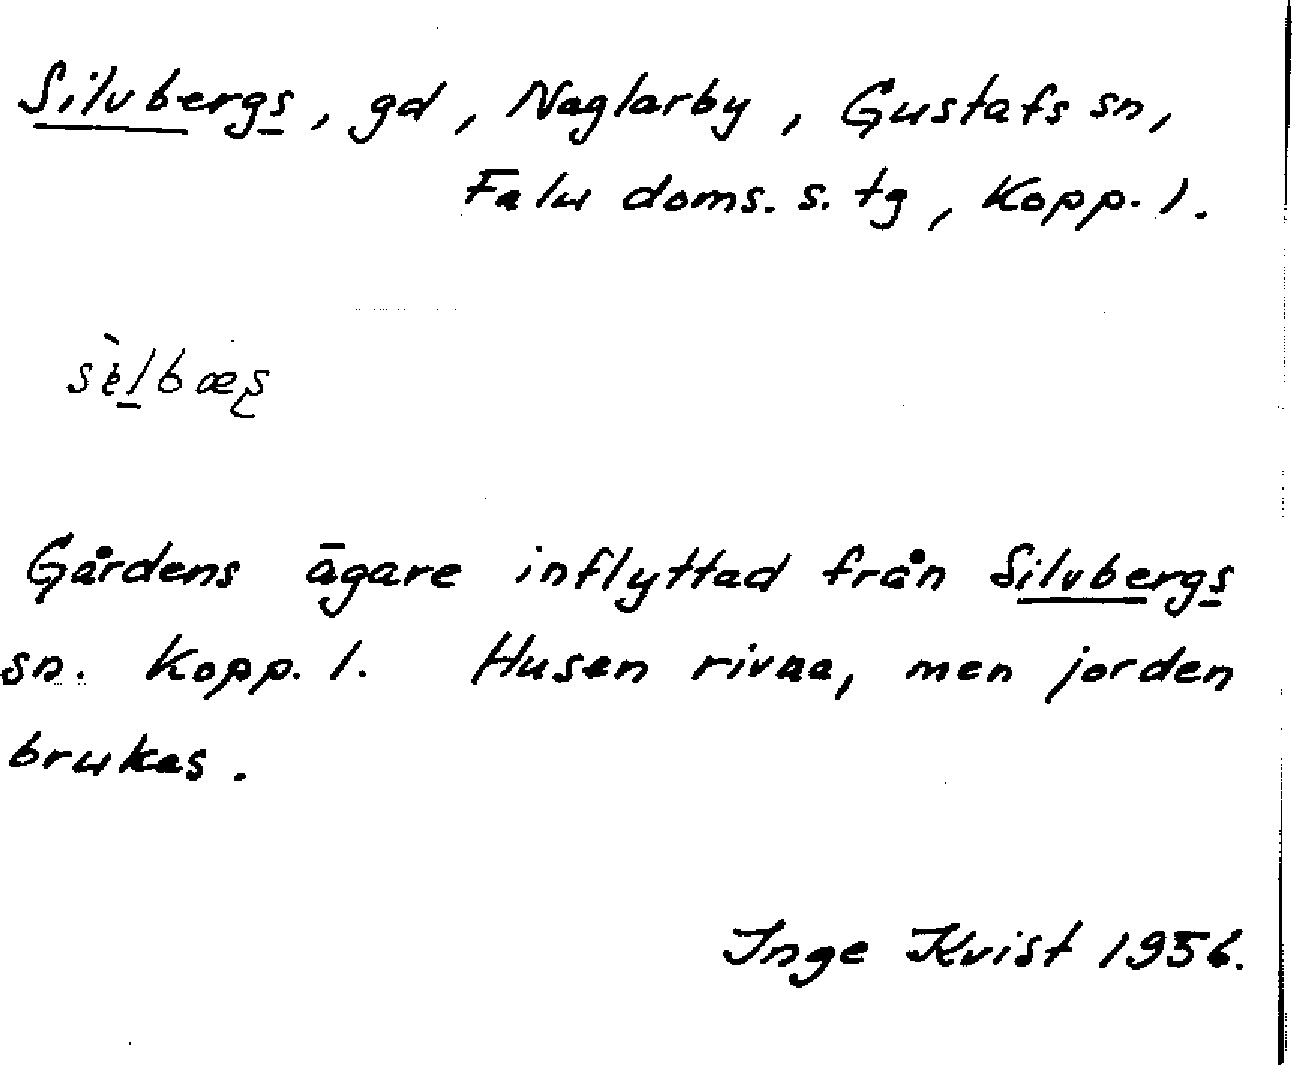 Silvbergs, gd, Naglarby, Gustafs sn,
Falu doms. s. tg, Kopp. l.
Gårdens ägare inflyttad från Silvbergs
sn. Kopp. l. Husen rivna, men jorden
brukas.
Inge Kvist 1956.